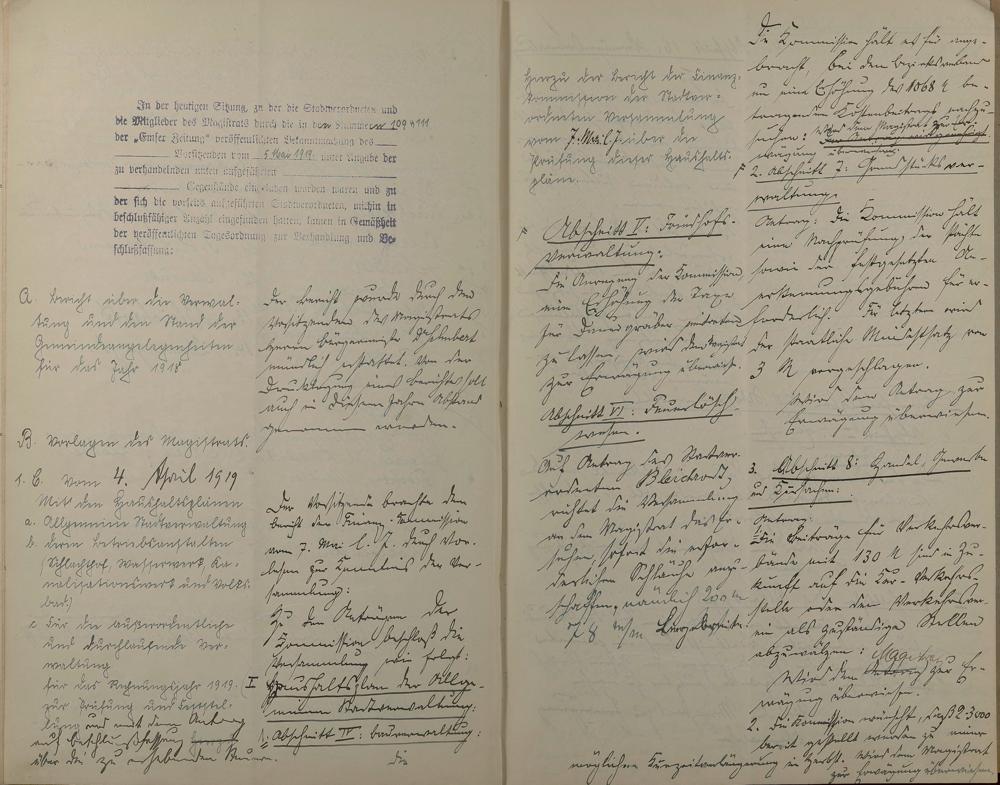 In der heutigen Sitzung, zu der die Stadtverordneten und
die Mitglieder des Magistrats durch die in den Nummern 109 + 111
der „Emser Zeitung" veröffentlichten Bekanntmachung des
Vorsitzenden vom 5. Mai 1919 unter Angabe der
zu verhandelnden unten aufgeführten
Gegenstände eingeladen worden waren und zu
der sich die vorseits aufgeführten Stadtverordneten, mithin in
beschlußfähiger Anzahl eingefunden hatten, kamen in Gemäßheit
der veröffentlichten Tagesordnung zur Verhandlung und Be-
schlußfassung:
A. Bericht über die Verwal-
tung und den Stand der
Gemeindeangelegenheiten
für das Jahr 1918
Der Bericht wurde durch den
Vorsitzenden des Magistrats
Herrn Bürgermeister Dr. Schubert
mündlich erstattet. Von der
Drucklegung eines Berichts soll
auch in diesem Jahre Abstand
genommen werden.
B. Vorlagen des Magistrats.
1. B. vom 4. April 1919
Mit den Haushaltsplänen
a. Allgemeine Stadtverwaltung
b. deren Betriebsanstalten
(Schlachthof, Wasserwerk, Ka-
nalisationswerk und Volks-
bad)
c. für die außerordentliche
und durchlaufende Ver-
waltung
für das Rechnungsjahr 1919.
zur Prüfung und Feststel-
lung und mit dem Antrag
auf Beschlußfassung
über die zu erhebenden Steuern.
Der Vorsitzende brachte den
Bericht der Finanz-Kommission
vom 7. Mai l. J. durch Vor-
lesen zur Kenntnis der Ver-
sammlung:
Zu den Anträgen der
Kommission beschloß die
Versammlung wie folgt:
I Haushaltsplan der Allge-
meinen Stadtverwaltung:
1. Abschnitt IV: Bauverwaltung:
die
Hierzu der Bericht der Finanz-
kommission der Stadtver-
ordneten Versammlung
vom 7. Mai l. J. über die
Prüfung dieser Haushalts-
pläne.
Abschnitt V: Friedhofs-
verwaltung:
Die Anregung der Kommission,
eine Erhöhung der Taxe
für Reihengräber eintreten
zu lassen, wird dem Magistrat
zur Erwägung überwiesen.
Abschnitt VI: Feuerlösch-
wesen.
Auf Antrag des Stadtver-
ordneten Bleichrodt,
richtet die Versammlung
an den Magistrat das Er-
suchen, sofort die erfor-
derlichen Schläuche anzu-
schaffen, nämlich 200 m
78 m/m
Die Kommission hält es für ange-
bracht, bei dem Bezirksverband
um eine Erhöhung des 1068 M be-
tragenden Kostenbeitrags nachzu-
suchen: Wird dem Magistrat zur Er-
wägung überwiesen.
2. Abschnitt 7: Grundstücksver-
waltung.
Antrag: Die Kommission hält
eine Nachprüfung der Pacht
sowie der festgesetzten An-
erkennungsgebühren für er-
forderlich. Für letztere wird
der staatliche Mindestsatz von
3 M vorgeschlagen.
Wird dem Antrag zur
Erwägung überwiesen.
3. Abschnitt 8: Handel, Gewerbe
und Kursachen:
Antrag:
1. Die Beiträge für Verkehrsver-
bände mit 130 M sind in Zu-
kunft auf die Kur-Verkehrs-
stelle oder den Verkehrsver-
ein als zuständige Stellen
abzuwälzen: Magistrat
Wird dem zur Er-
wägung überwiesen.
2. Die Kommission wünscht, daß 23000
bereit gestellt werden zu einer
möglichen Kurzeitverlängerung im Herbst. Wird dem Magistrat
zur Erwägung überwiesen.